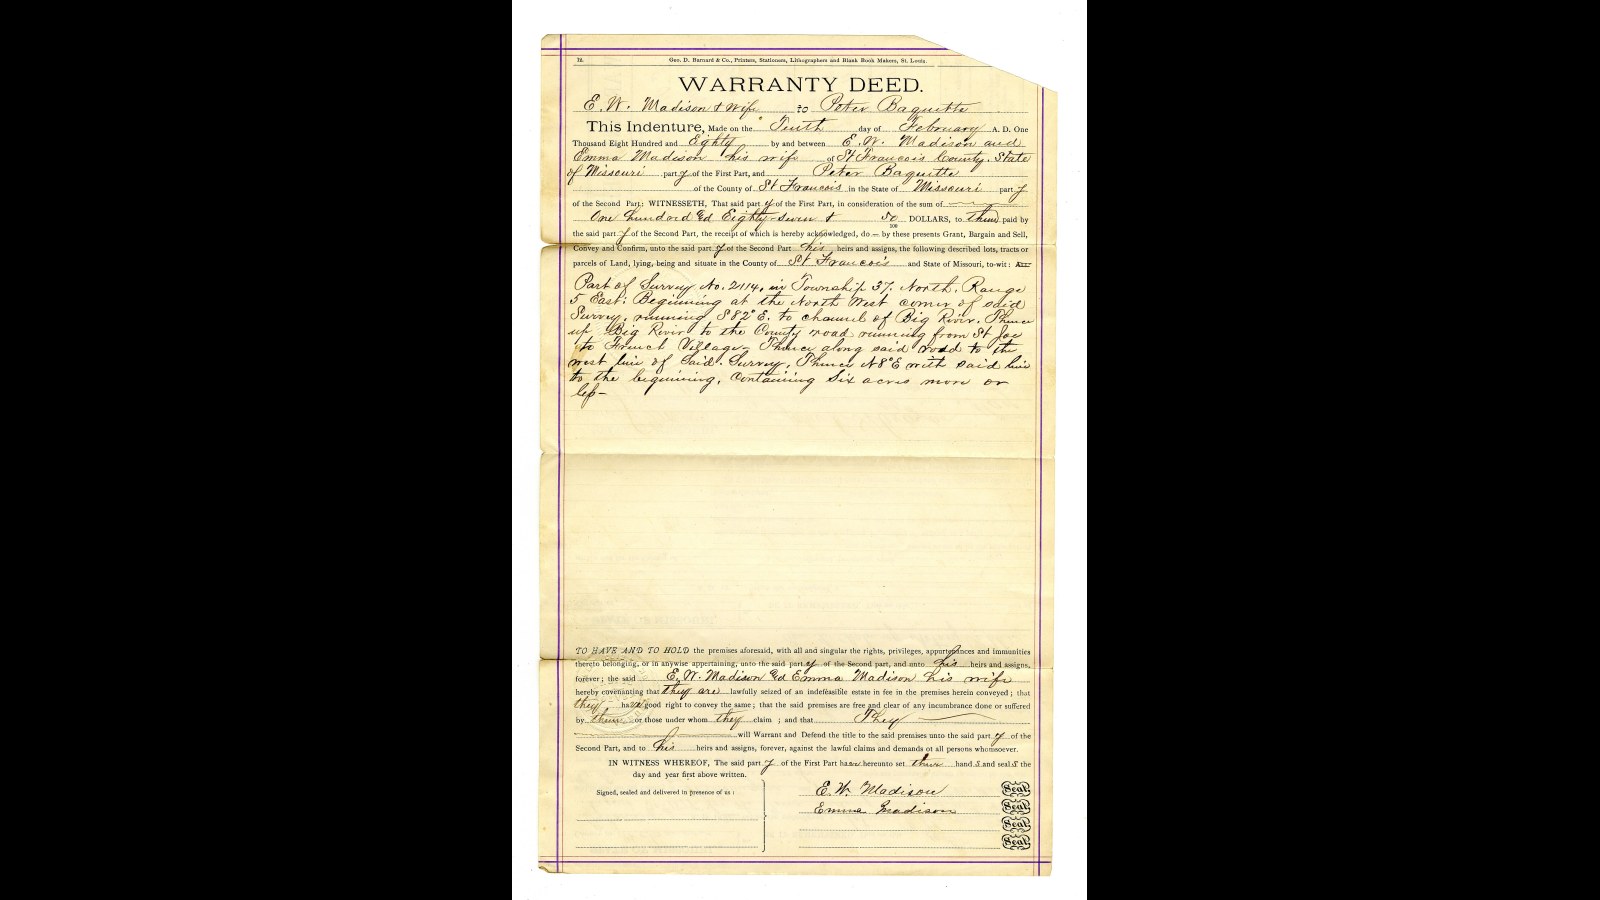 12. Geo. D. Barnard & Co., Printers, Stationers, Lithographers and Blank Book Makers, St. Louis.
WARRANTY DEED.
E. W. Madison & Wife to Peter Baquette
This Indenture, Made on the Tenth day of February A. D. One
Thousand Eight Hundred and Eighty by and between E. W. Madison and
Emma Madison his wife of St Francois County, State
of Missouri party of the First Part, and Peter Baquette
of the County of St Francois in the State of Missouri party
of the Second Part: WITNESSETH, That said party of the First Part, in consideration of the sum of
One hundred & Eighty-seven & 50/100 DOLLARS, to them paid by
the said party of the Second Part, the receipt of which is hereby acknowledged, do — by these presents Grant, Bargain and Sell,
Convey and Confirm, unto the said party of the Second Part his heirs and assigns, the following described lots, tracts or
parcels of Land, lying, being and situate in the County of St Francois and State of Missouri, to-wit:
Part of Survey No. 2114, in Township 37. North, Range
5 East: Beginning at the North West corner of said
Survey, running S 82° E. to channel of Big River. Thence
up Big River to the County road running from St Joe
to French Village– Thence along said road to the
west line of Said Survey, Thence N 8° E with said line
to the beginning, Containing Six acres more or
less–
TO HAVE AND TO HOLD the premises aforesaid, with all and singular the rights, privileges, appurtenances and immunities
thereto belonging, or in anywise appertaining, unto the said party of the Second part, and unto his heirs and assigns,
forever; the said E. W. Madison & Emma Madison his wife
hereby covenanting that they are lawfully seized of an indefeasible estate in fee in the premises herein conveyed; that
they have good right to convey the same; that the said premises are free and clear of any incumbrance done or suffered
by them or those under whom they claim; and that They
will Warrant and Defend the title to the said premises unto the said party of the
Second Part, and to his heirs and assigns, forever, against the lawful claims and demands of all persons whomsoever.
IN WITNESS WHEREOF, The said party of the First Part have hereunto set their hands and seals the
day and year first above written.
Signed, sealed and delivered in presence of us:
E. W. Madison Seal
Emma Madison Seal
Seal
Seal